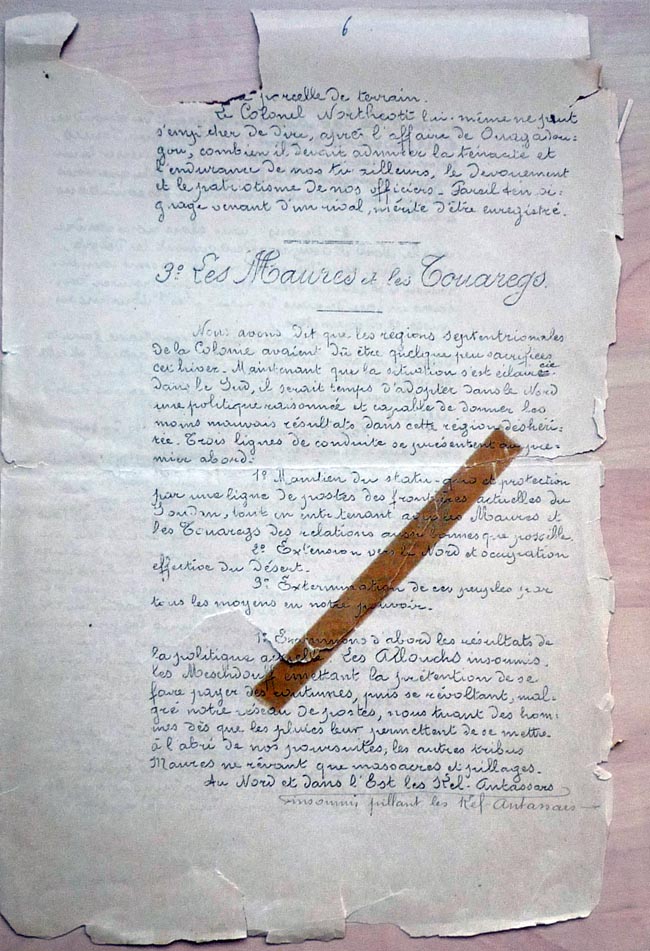 6
parcelle de terrain.
Le Colonel Northcott lui-même ne peut
s'empêcher de dire, après l'affaire de Ouagadou-
gou, combien il devait admirer la ténacité et
l'endurance de nos tirailleurs, le devouement
et le patriotisme de nos officiers. Pareil témoi-
gnage venant d'un rival, mérite d'être enregistré.
3º Les Maures et les Touaregs.
Nous avons dit que les régions septentrionales
de la Colonie avaient dû être quelque peu sacrifiées
cet hiver. Maintenant que la situation s'est éclaircie
dans le Sud, il serait temps d'adopter dans le Nord
une politique raisonnée et capable de donner
moins mauvais résultats dans cette région déshéri-
tée. Trois lignes de conduite se présentent au pre-
mier abord.
1º Maintien du statu-quo et protection
par une ligne de postes des frontières actuelles du
Soudan, tout en entretenant avec les Maures et
les Touaregs des relations aussi bonnes que possible.
2º Extension vers le Nord et occupation
effective du Désert.
3º Extermination de ces peuples par
tous les moyens en notre pouvoir.
1º Examinons d'abord les résultats de
la politique actuelle. Les Allouchs insoumis.
les Meschdouff émettant la prétention de se
faire payer des coutumes, puis se révoltant, mal-
gré notre réseau de postes, nous tuant des hom-
mes dès que les pluies leur permettent de se mettre
à l'abri de nos poursuites, les autres tribus
Maures ne rêvant que massacres et pillages.
Au Nord et dans l'Est les Kel-Antassars
insoumis pillant les Kel-Antassars